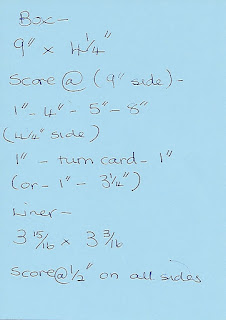 Box -
9" x 4 1/4"
Score @ (9" side) -
1" - 4" - 5" - 8"
(4 1/4" side)
1" - turn card - 1"
(or - 1" - 3 1/4")
Liner -
3 15/16 x 3 3/16
Score @ 1/2" on all sides